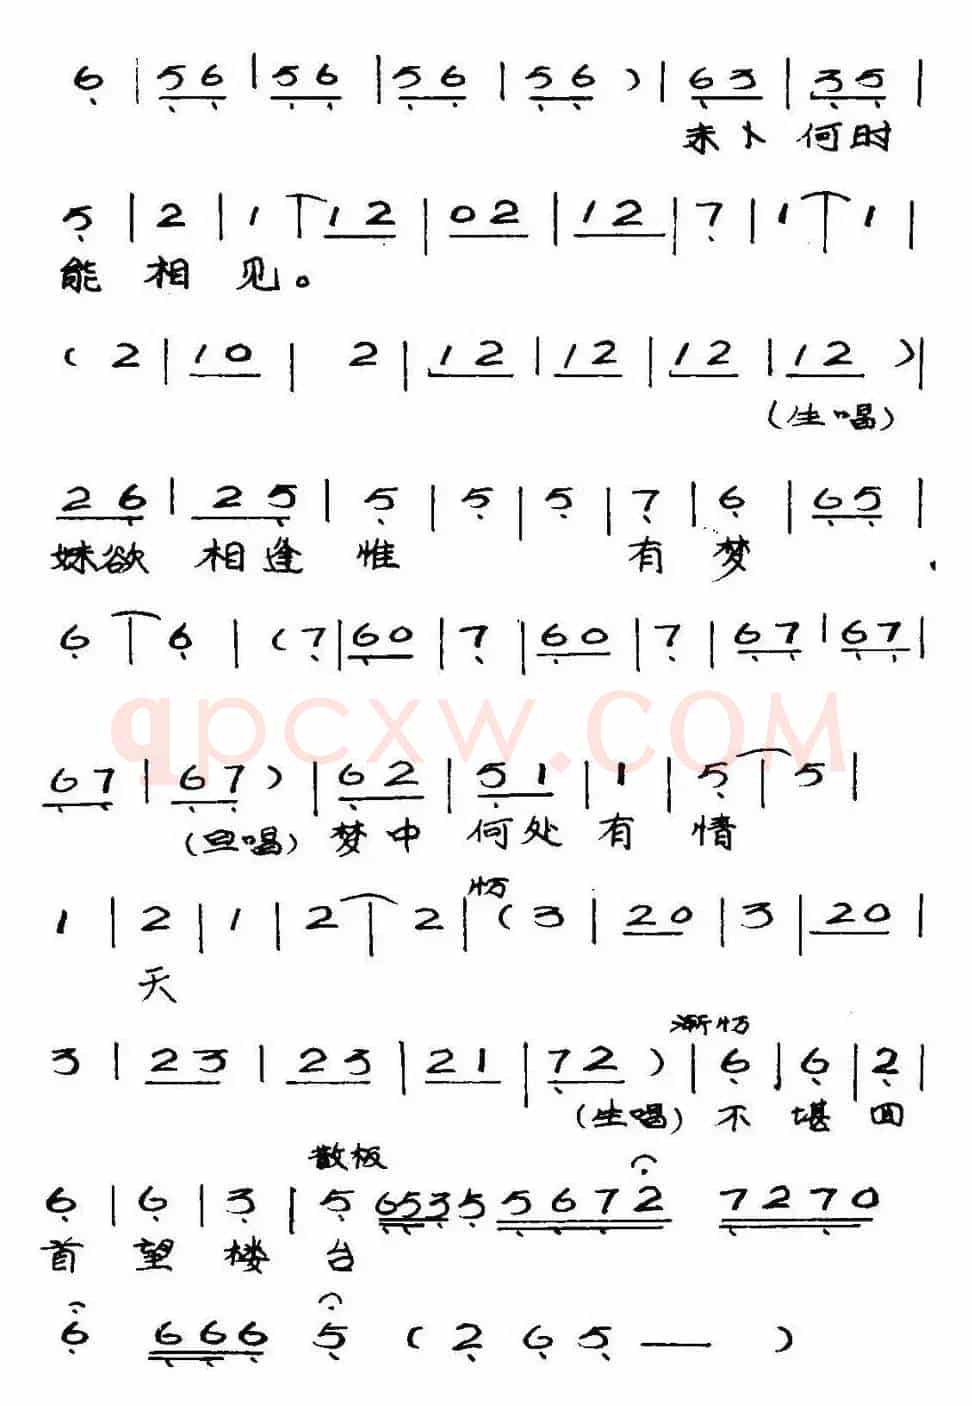 6̣ | 5̣6̣ | 5̣6̣ | 5̣6̣ | 5̣6̣ ) | 6̣3 | 3̣5̣ |
未卜 何时
5̣ | 2 | 1 | 12 | 02 | 12 | 7̣ | 1 | 1 |
能 相 见。
( 2 | 10 | 2 | 12 | 12 | 12 | 12 ) |
(生唱)
26̣ | 25̣ | 5̣ | 5̣ | 5̣ | 7̣ | 6̣ | 6̣5̣ |
妹欲 相逢 惟 有 梦
6̣ | 6̣ | ( 7̣ | 6̣0 | 7̣ | 6̣0 | 7̣ | 6̣7̣ | 6̣7̣ |
qpcxw.COM
6̣7̣ | 6̣7̣ ) | 6̣2 | 5̣1 | 1 | 5̣ | 5 |
(旦唱) 梦中 何处 有 情
1 | 2 | 1 | 2 | 2 | ( 3 | 20 | 3 | 20 |
天
渐
3 | 23 | 23 | 21 | 7̣2 ) | 6̣ | 6̣ | 2̣ |
(生唱) 不 堪 回
散板
6̣ | 6̣ | 3̣ | 5̣ 6̣5̣3̣5̣ 5̣6̣7̣2 7̣27̣0
首 望 楼 台
6̣ 6̣6̣6̣ 5̣ ( 2̣ 6̣ 5̣ — )